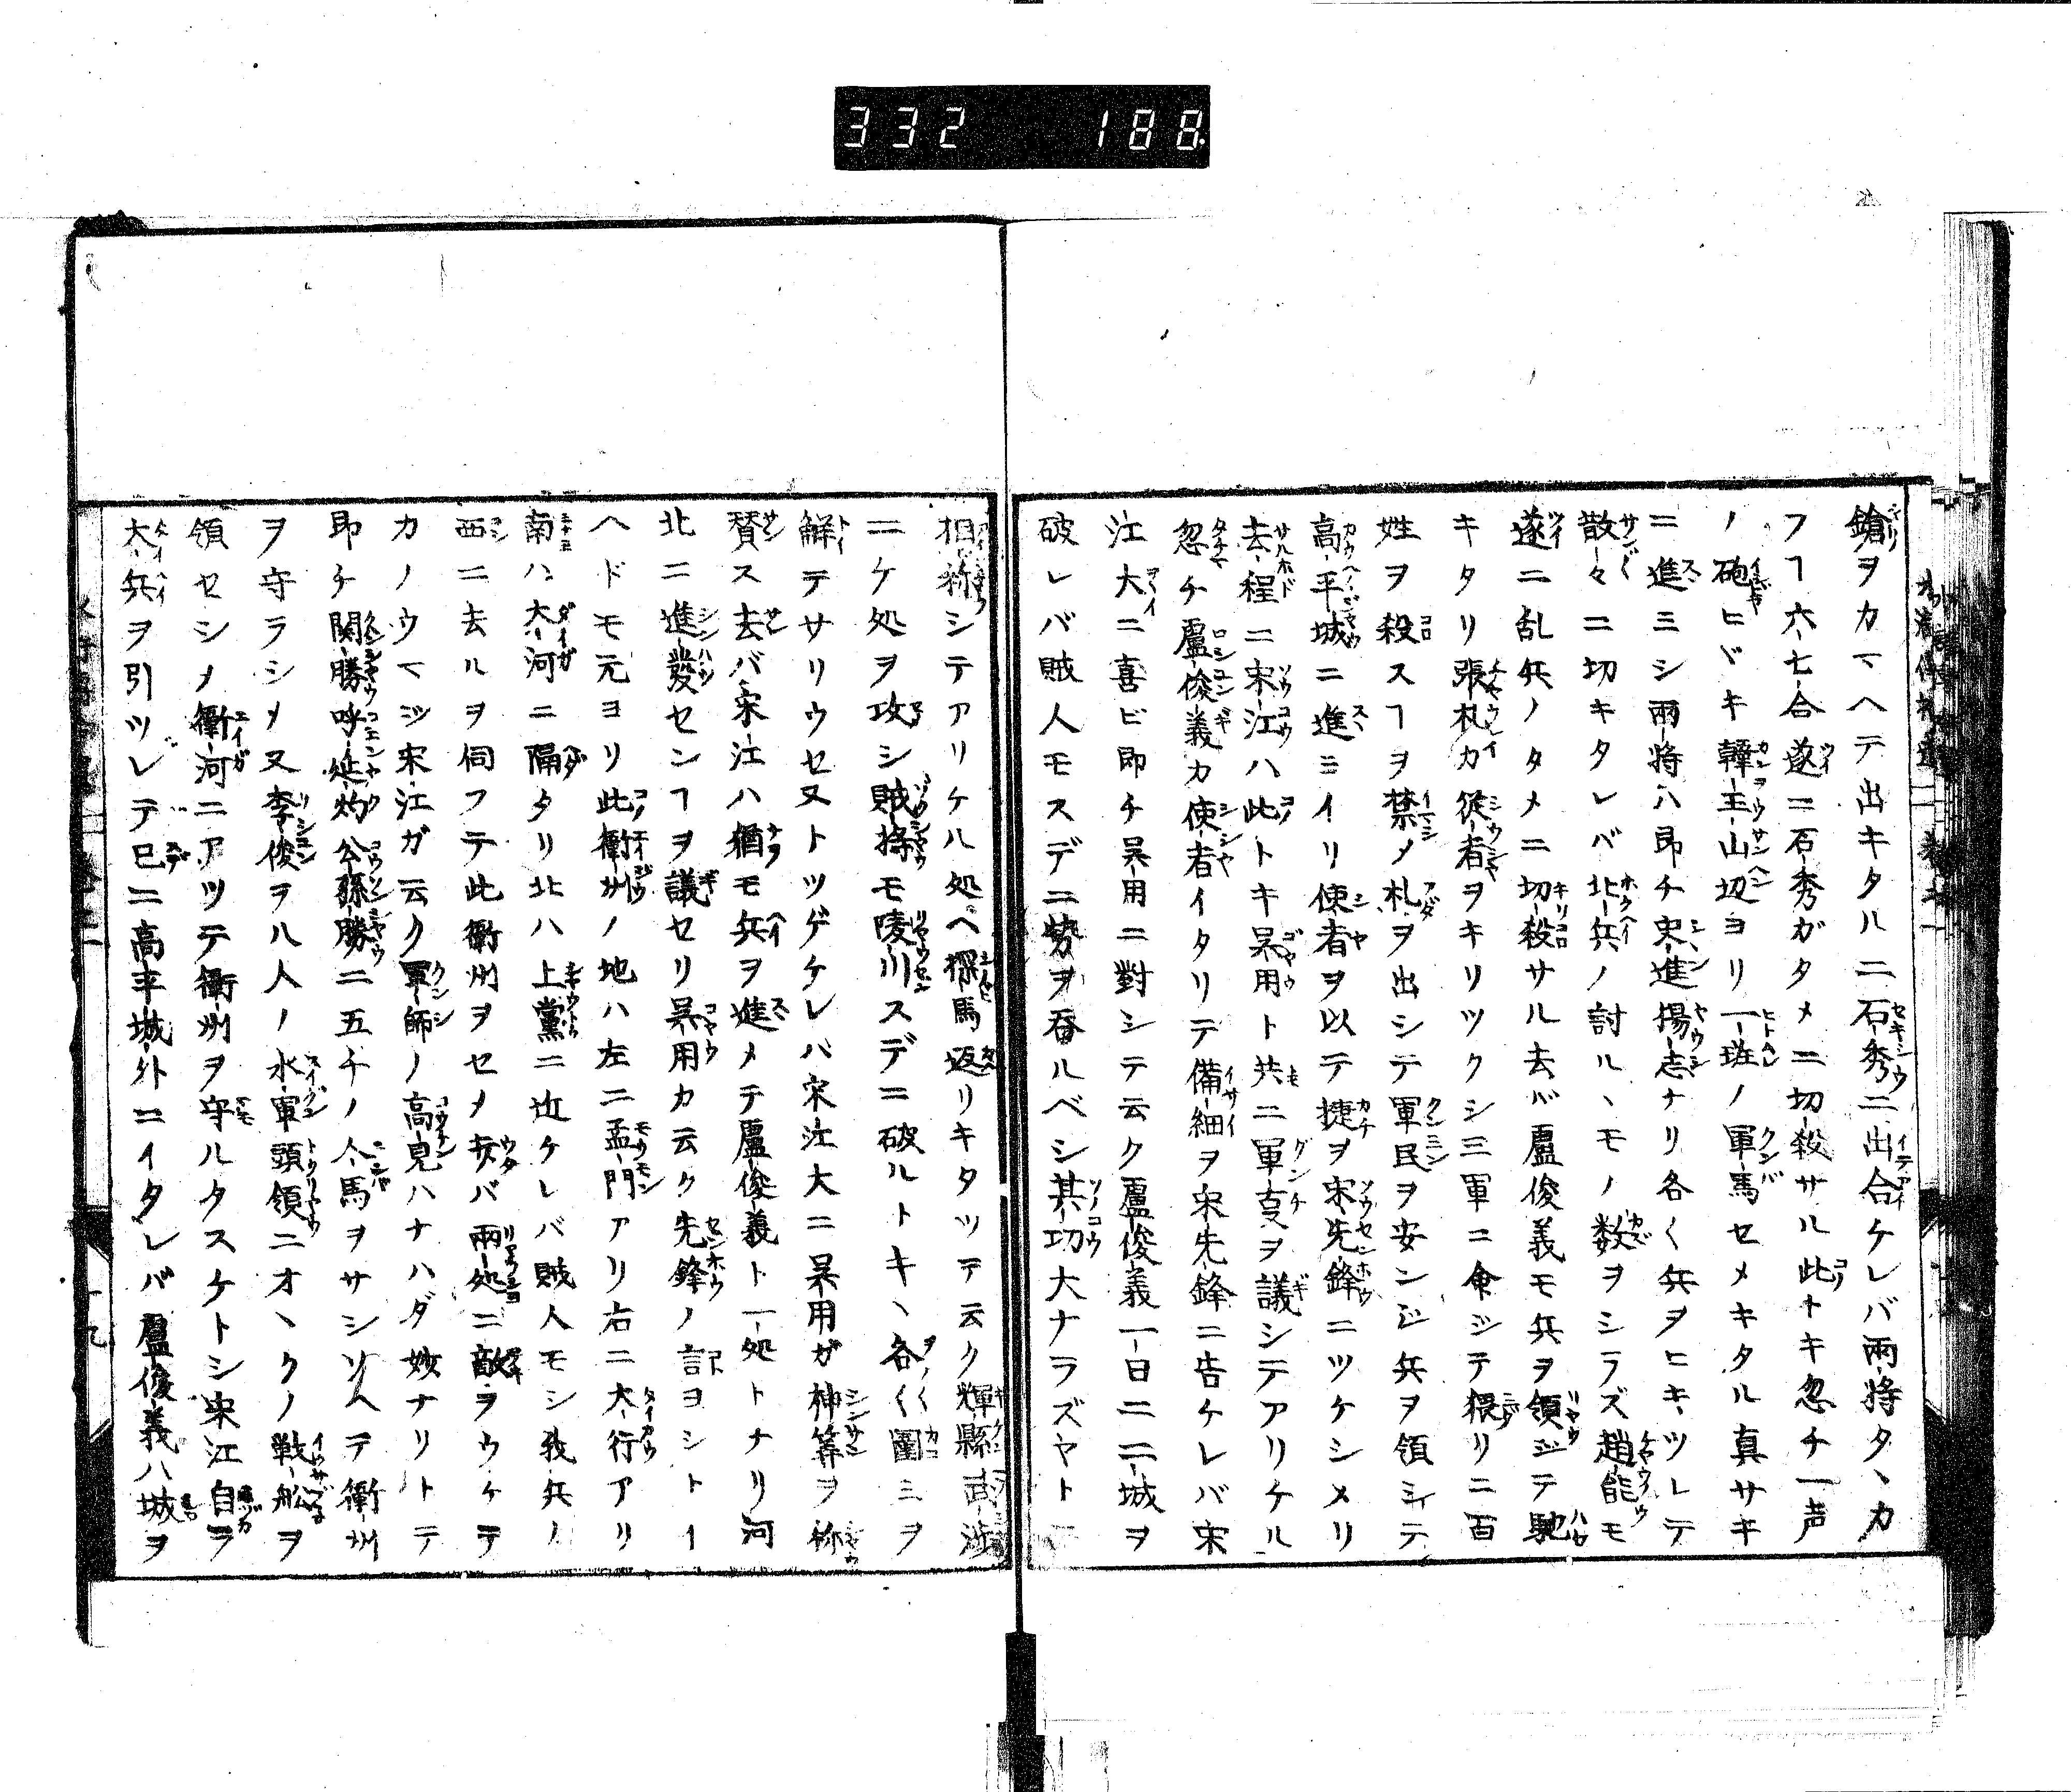 332 188
鎗ヲカマヘテ出キタルニ石秀ニ出合ケレバ兩将タヽカ
フヿ六七合遂ニ石秀ガタメニ切殺サル此トキ忽チ一声
ノ砲ヒヾキ韓王山辺ヨリ一班ノ軍馬セメキタル真サキ
ニ進ミシ兩将ハ即チ史進揚志ナリ各〱兵ヲヒキツレテ
散々ニ切キタレバ北兵ノ討ルヽモノ数ヲシラズ趙能モ
遂ニ乱兵ノタメニ切殺サル去バ盧俊義モ兵ヲ領ジテ馳
キタリ張札カ従者ヲキリツクシ三軍ニ命ジテ猥リニ百
姓ヲ殺スヿヲ禁メ札ヲ出シテ軍民ヲ安ンジ兵ヲ領シテ
高平城ニ進ミイリ使者ヲ以テ捷ヲ宋先鋒ニツケシメリ
去程ニ宋江ハ此トキ呉用ト共ニ軍亊ヲ議シテアリケル
忽チ盧俊義カ使者イタリテ備細ヲ宋先鋒ニ告ケレバ宋
江大ニ喜ビ即チ呉用ニ對シテ云ク盧俊義一日ニ二城ヲ
破レバ賊人モスデニ勢ヲ呑ルベシ其功大ナラズヤト
相称シテアリケル処ヘ探馬返リキタツテ云ク輝縣武渉
ニケ処ヲ攻シ賊将モ陵川スデニ破ルトキヽ各〱圍ミヲ
觧テサリウセヌトツゲケレバ宋江大ニ呉用ガ神筭ヲ称
賛ス去バ宋江ハ猶モ兵ヲ進メテ盧俊義ト一処トナリ河
北ニ進發センヿヲ議セリ呉用カ云ク先鋒ノ言ヨシトイ
ヘドモ元ヨリ此衛州ノ地ハ左ニ孟門アリ右ニ大行アリ
南ハ大河ニ隔タリ北ハ上黨ニ近ケレバ賊人モシ我兵ノ
西ニ去ルヲ伺フテ此衛州ヲセメ来バ兩処ニ敵ヲウケテ
カノウマジ宋江ガ云ク軍師ノ高見ハナハダ妙ナリトテ
即チ関勝呼延灼公孫勝ニ五千ノ人馬ヲサシソヘテ衛州
ヲ守ラシメ又李俊ヲル人ノ水軍頭領ニオヽクノ戦舩ヲ
領セシメ衛河ニアツテ衛州ヲ守ルタスケトシ宋江自ラ
大兵ヲ引ツレデ已ニ高平城外ニイタレバ盧俊義ハ城ヲ